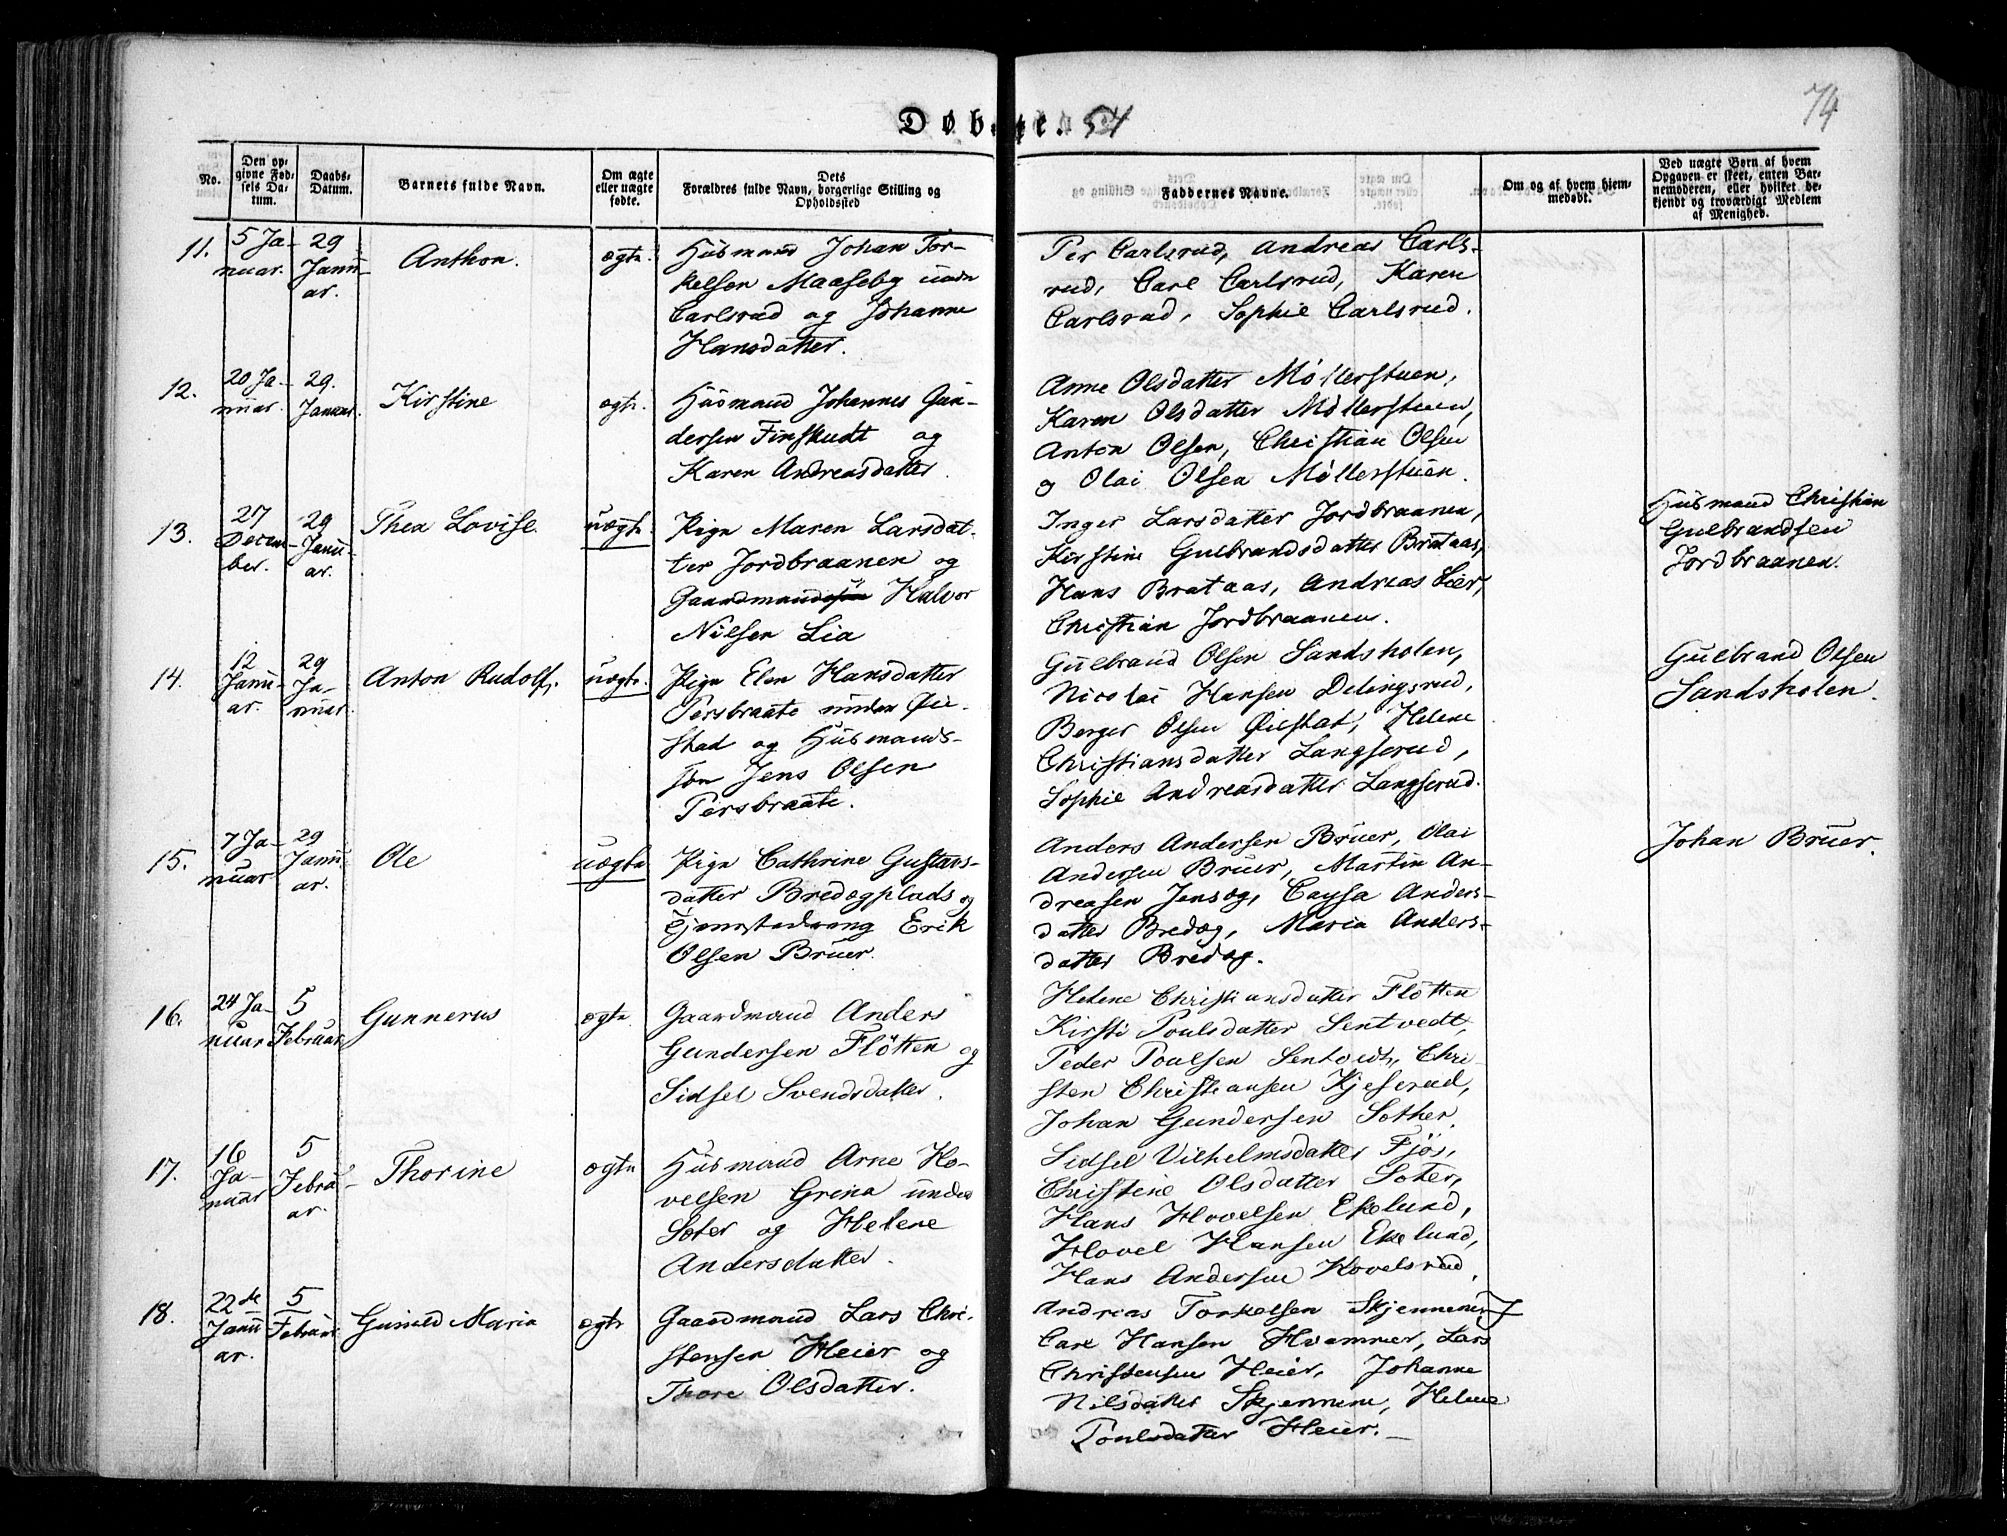 74
Døbte. 54
No.
Den op-
givne Fød-
sels Da-
tum.
Daabs-
Datum.
Barnets fulde Navn.
Om ægte
eller uægte
fødte.
Dets
Forældres fulde Navn, borgerlige Stilling og
Opholdssted
Faddernes Navne.
Om og af hvem hjem-
medøbt.
Ved uægte Børn af hvem
Opgaven er skeet, enten Bar-
nemoderen, eller hvilket be-
kjendt og troværdigt Medlem
af Menighed.
11.
5 Ja-
nuar.
29
Janu-
ar.
Anthon.
ægte.
Husmand Johan Tor-
kelsen Maaseby under
Carlsrud og Johanne
Hansdatter.
Per Carlsrud, Andreas Carls-
rud, Carl Carlsrud, Karen
Carlsrud, Sophie Carlsrud.
12.
20 Ja-
nuar.
29.
Januar.
Kirstine
ægte.
Husmand Johannes Gun-
dersen Finskudt og
Karen Andreasdatter.
Anne Olsdatter Møllerstuen,
Karen Olsdatter Møllerstuen,
Anton Olsen, Christian Olsen
og Olai Olsen Møllerstuen.
13.
27
Decem-
ber.
29
Janu-
ar.
Thea Lovise
uægte.
Pige Maren Larsdat-
ter Jordbraanen og
Gaardmand Halvor
Nilsen Lia
Inger Larsdatter Jordbraanen,
Kirstine Gulbrandsdatter Brataas,
Hans Brataas, Andreas Lier,
Christian Jordbraanen.
Husmand Christian
Gulbrandsen
Jordbraanen.
14.
12
Janu-
ar.
29
Ja-
nuar.
Anton Rudolf.
uægte.
Pige Elen Hansdatter
Persbraate under Øie-
stad og Husmands-
søn Jens Olsen
Persbraate.
Gulbrand Olsen Sandsholen,
Nicolai Hansen Delingsrud,
Berger Olsen Øiestat, Helene
Christiansdatter Langserud,
Sophie Andreasdatter Langserud.
Gulbrand Olsen
Sandsholen.
15.
7 Ja-
nuar
29
Janu-
ar.
Ole
uægte
Pige Cathrine Gustavs-
datter Bredægplads og
Erik
Olsen Bruer.
Anders Andersen Bruer, Olai
Andersen Bruer, Martin An-
dreasen Jensæg, Caysa Anders-
datter Bredæg, Maria Anders-
datter Bredæg.
Johan Bruer.
16.
24 Ja-
nuar
5
Februar
Gunnerus
ægte
Gaardmand Anders
Gundersen Fløtten og
Sidsel Svendsdatter.
Helene Christiansdatter Fløtten
Kirsti Poulsdatter Sentvedt,
Peder Poulsen Sentvedt, Chri-
sten Christiansen Kjeserud,
Johan Gundersen Sother.
17.
16
Ja-
nuar
5
Febru-
ar.
Thorine
ægte
Husmand Arne Ho-
velsen Grina under
Soter og Helene
Andersdatter.
Sidsel Vilhelmsdatter Fjøs,
Christine Olsdatter Soter,
Hans Hovelsen Ekelund,
Hovel Hansen Ekelund,
Hans Andersen Hovelsrud,
18.
22de
Janu-
ar.
5
Februar
Gunild Maria
ægte
Gaardmand Lars Chri-
stensen Heier og
Thore Olsdatter.
Andreas Torkelsen Skjennene,
Carl Hansen Hvammer, Lars
Christensen Heier, Johanne
Nilsdatter Skjennene, Helene
Poulsdatter Heier.